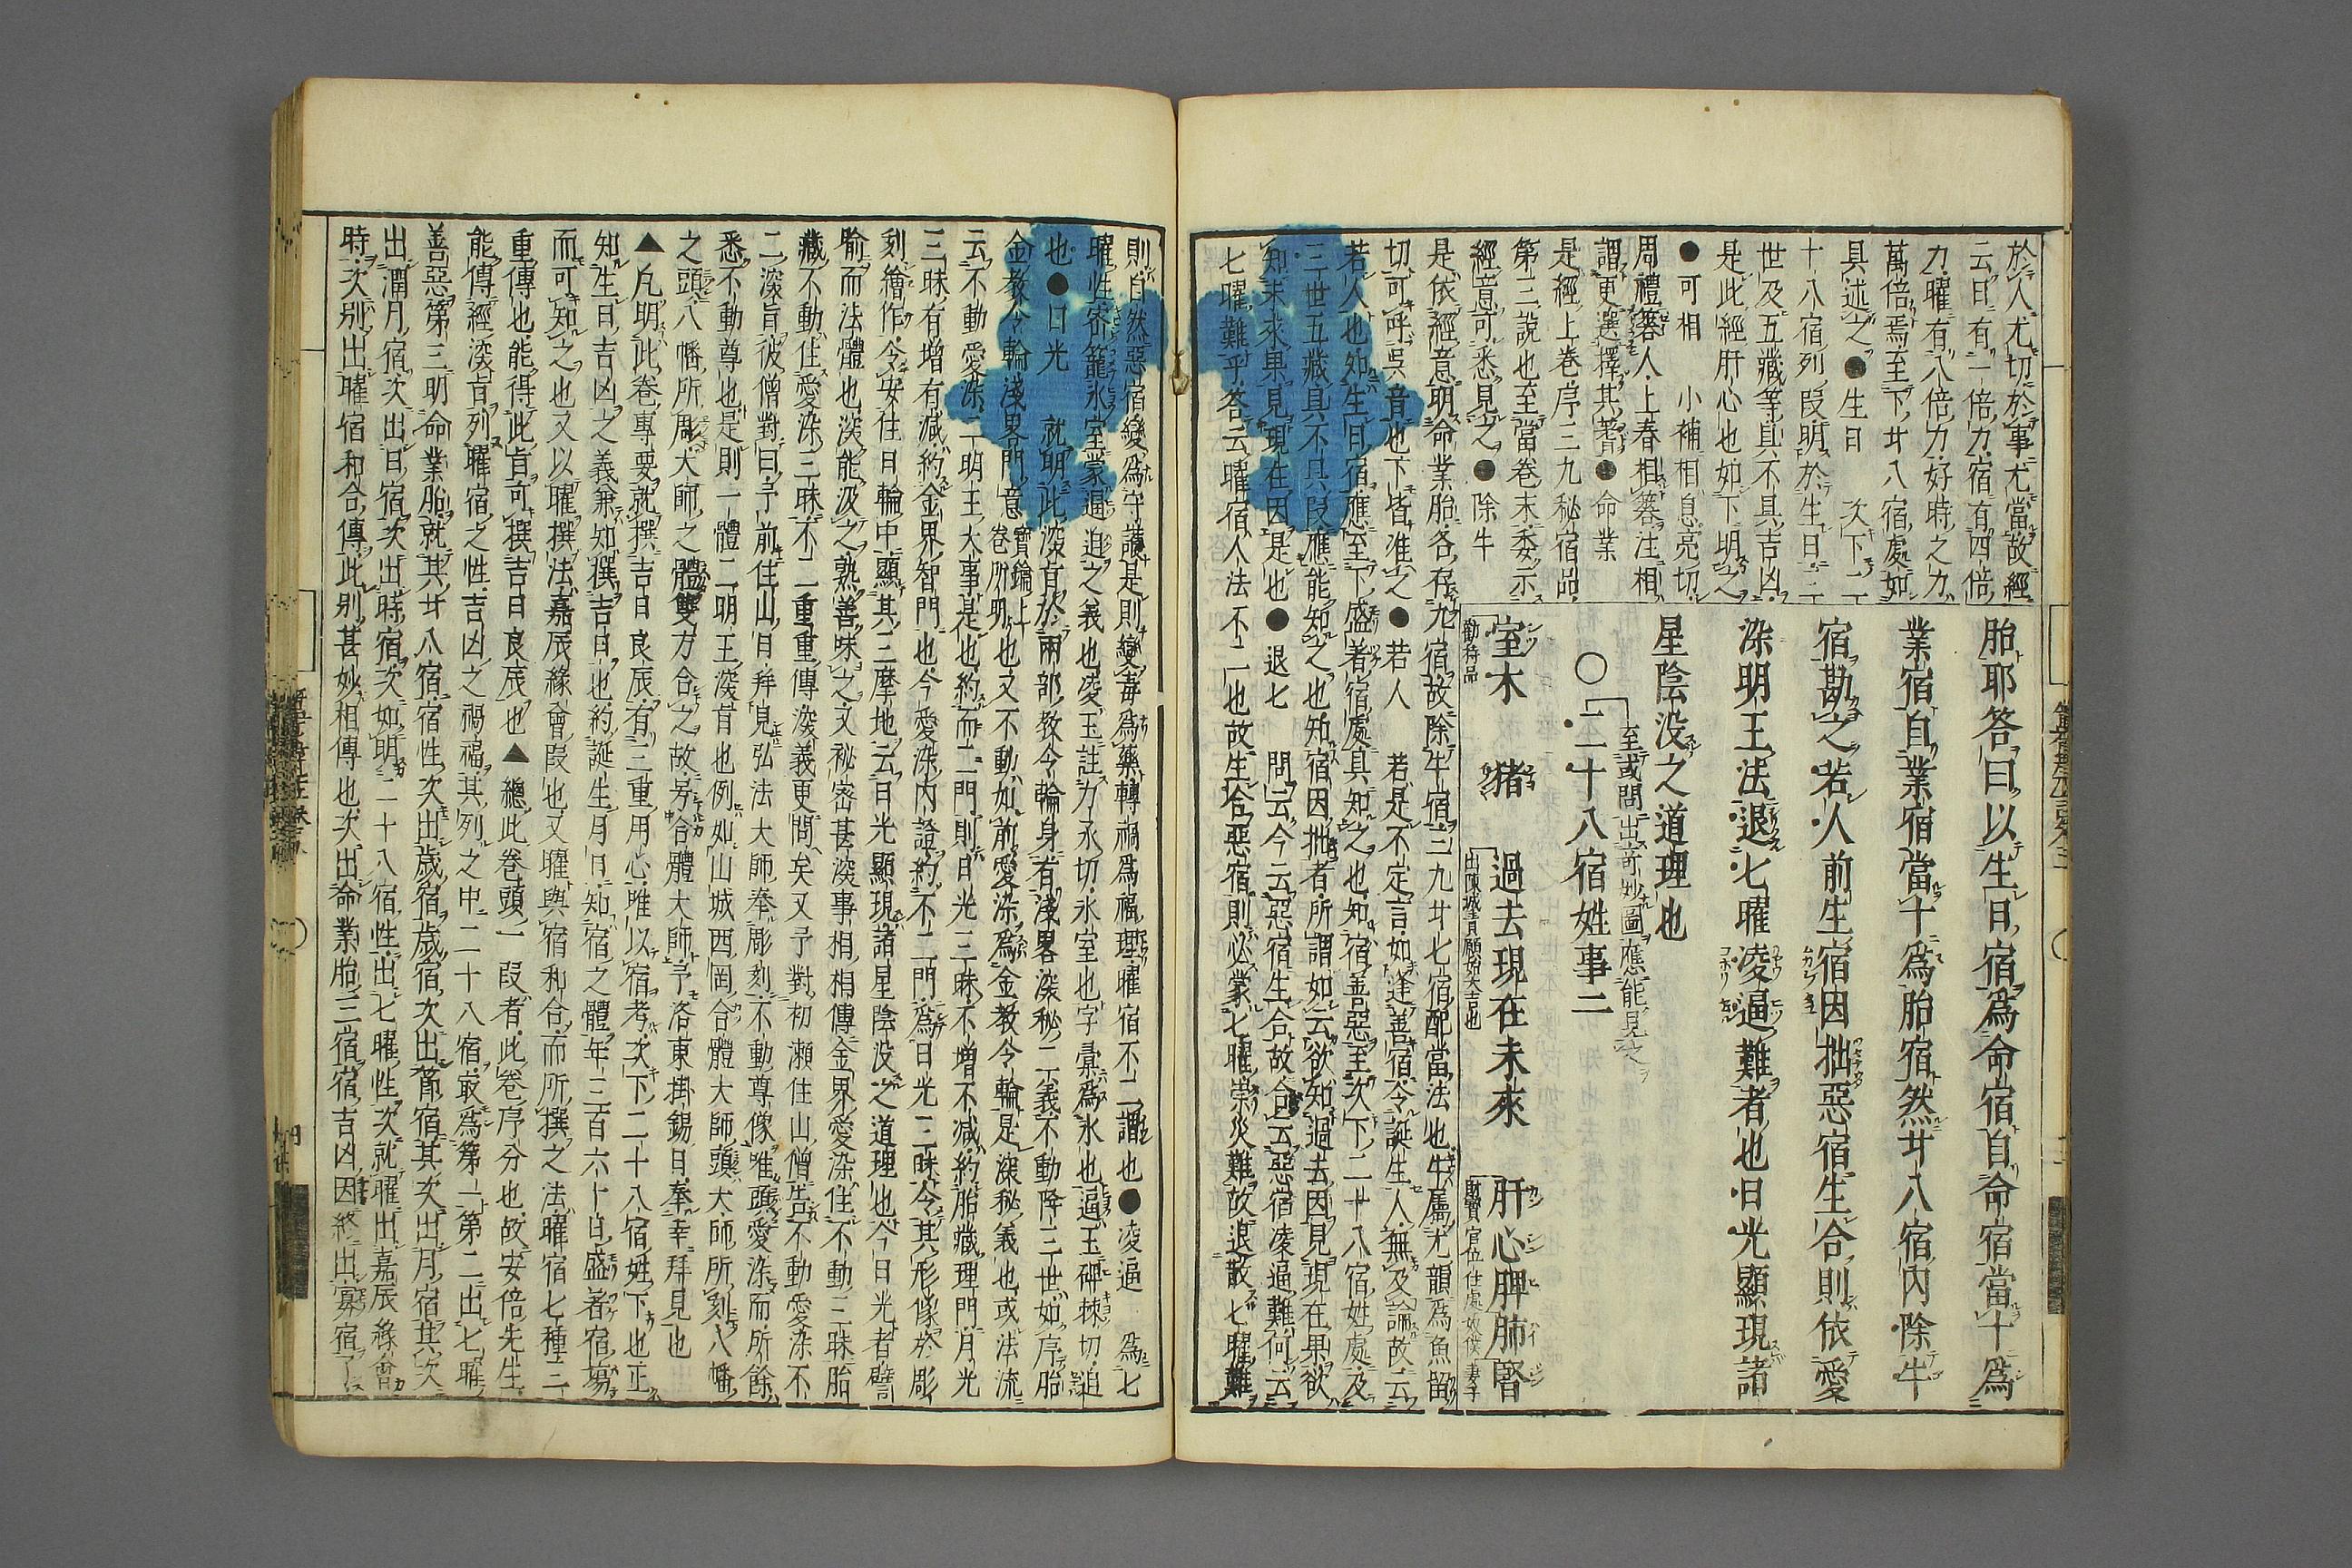 於人尤切於事尤當故經
云日有一倍力宿有四倍
力曜有八倍力好時之力
萬倍焉至下廿八宿處如
具述之●生日 次下二
十八宿列段明於生日三
世及五藏等具不具吉凶
是此經肝心也如下明之
●可相 小補相息亮切
周禮簭人上春相簭注相
謂更選擇其蓍●命業
是經上卷序三九秘宿品
第三說也至當卷末委示
經意可悉見之●除牛
胎耶答曰以生日宿爲命宿自命宿當十爲
業宿自業宿當十爲胎宿然廿八宿內除牛
宿勘之若人前生宿因拙惡宿生合則依愛
染明王法退七曜凌逼難者也日光顯現諸
星陰没之道理也
至或問出奇妙圖應能見之
○二十八宿姓事二
室木 猪 過去現在未來 肝心脾肺腎
是依經意明命業胎各存九宿故除牛宿三九廿七宿配當法也牛屬尤韻爲魚留
切可呼吳音也下皆准之●若人 若是不定言如逢善宿令誕生人無及論故云
若人也知生日宿應至下盛著宿處具知之也知宿善惡至次下二十八宿姓處及
三世五藏具不具段應能知之也知宿因拙者所謂如云欲知過去因見現在果欲
知未來果見現在因是也●退七 問云今云惡宿生合故合云惡宿凌逼難何云
七曜難乎答云曜宿人法不二也故生合惡宿則必蒙七曜崇災難故退散七曜難
則自然惡宿變爲守護是則變毒爲藥轉禍爲福理曜宿不二謂也●凌逼 爲七
曜性宿籠氷室蒙逼迫之義也凌玉註力永切氷室也字彙爲氷也逼玉碑棘切迫
也●日光 就明此深旨於兩部教令輪身有淺畧深秘二義不動降三世如序胎
金教令輪淺畧門意寶鑰上卷所明也又不動如前愛染爲金教令輪是深秘義也或法流
云不動愛染二明王大事是也約而二門則日光三昧不增不減約胎藏理門月光
三昧有增有減約金界智門也今愛染內證約不二門爲日光三昧令其形像於彫
刻繪作令安住日輪中顯其三摩地云日光顯現諸星陰没之道理也今日光者譬
喻而法體也深能汲之熟善味之又祕密甚深事相相傳金界愛染住不動三昧胎
藏不動住愛染三昧不二重重傳深義更問矣又予對初瀬住山僧告不動愛染不
二深旨彼僧對曰予前住山日拜見弘法大師奉彫刻不動尊像唯頭愛染而所餘
悉不動尊也是則一體二明王深旨也例如山城西岡合體大師頭大師所刻八幡
之頭八幡所彫大師之體雙方合之故号合體大師予洛東掛錫日奉幸拜見也
▲凡明此卷專要就撰吉日良辰有三重用心唯以宿考次下二十八宿姓下也正
知生日吉凶之義兼知撰吉日也約誕生月日知宿之體年三百六十日盛著宿易
而可知之也又以曜撰法嘉辰緣會段也又曜與宿和合而所撰之法曜宿七種二
重傳也能得此旨可撰吉日良辰也▲總此卷頭一段者此卷序分也故安倍先生
能傳經深旨列曜宿之性吉凶之禍福其列之中二十八宿最爲第一第二出七曜
善惡第三明命業胎就其廿八宿宿性次出歲宿歲宿次出節宿其次出月宿其次
出潤月宿次出日宿次出時宿次如明二十八宿性出七曜性次就曜出嘉辰緣會
時次別出曜宿和合傳此別甚妙相傳也次出命業胎三宿宿吉凶因終出寡宿了